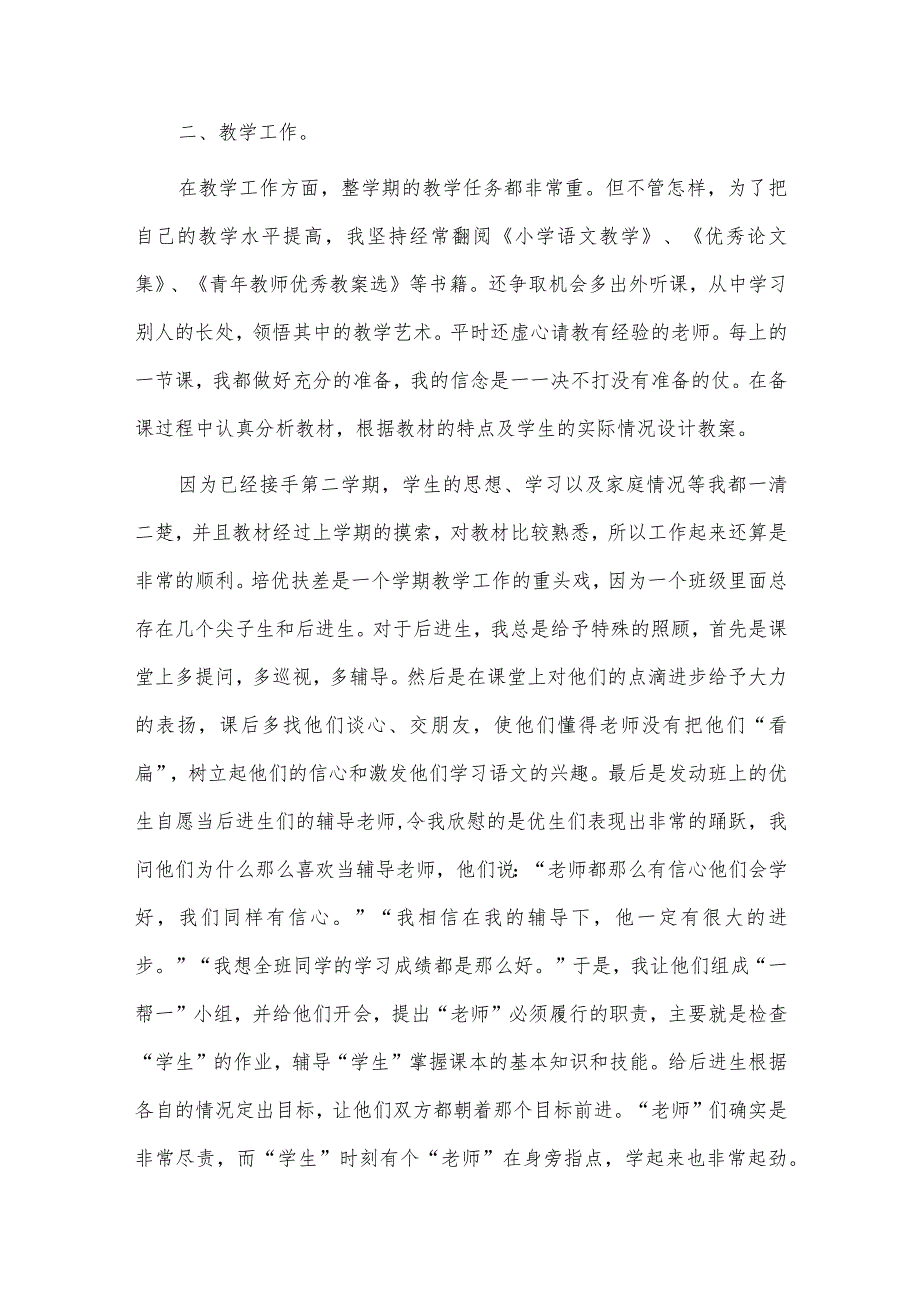 二、教学工作。
在教学工作方面，整学期的教学任务都非常重。但不管怎样，为了把
自己的教学水平提高，我坚持经常翻阅《小学语文教学》、《优秀论文
集》、《青年教师优秀教案选》等书籍。还争取机会多出外听课，从中学习
别人的长处，领悟其中的教学艺术。平时还虚心请教有经验的老师。每上的
一节课，我都做好充分的准备，我的信念是一一决不打没有准备的仗。在备
课过程中认真分析教材，根据教材的特点及学生的实际情况设计教案。
因为已经接手第二学期，学生的思想、学习以及家庭情况等我都一清
二楚，并且教材经过上学期的摸索，对教材比较熟悉，所以工作起来还算是
非常的顺利。培优扶差是一个学期教学工作的重头戏，因为一个班级里面总
存在几个尖子生和后进生。对于后进生，我总是给予特殊的照顾，首先是课
堂上多提问，多巡视，多辅导。然后是在课堂上对他们的点滴进步给予大力
的表扬，课后多找他们谈心、交朋友，使他们懂得老师没有把他们“看
扁”，树立起他们的信心和激发他们学习语文的兴趣。最后是发动班上的优
生自愿当后进生们的辅导老师,令我欣慰的是优生们表现出非常的踊跃，我
问他们为什么那么喜欢当辅导老师，他们说：“老师都那么有信心他们会学
好，我们同样有信心。”“我相信在我的辅导下，他一定有很大的进
步。”“我想全班同学的学习成绩都是那么好。”于是，我让他们组成“一
帮一”小组，并给他们开会，提出“老师”必须履行的职责，主要就是检查
“学生”的作业，辅导“学生”掌握课本的基本知识和技能。给后进生根据
各自的情况定出目标，让他们双方都朝着那个目标前进。“老师”们确实是
非常尽责，而“学生”时刻有个“老师”在身旁指点，学起来也非常起劲。